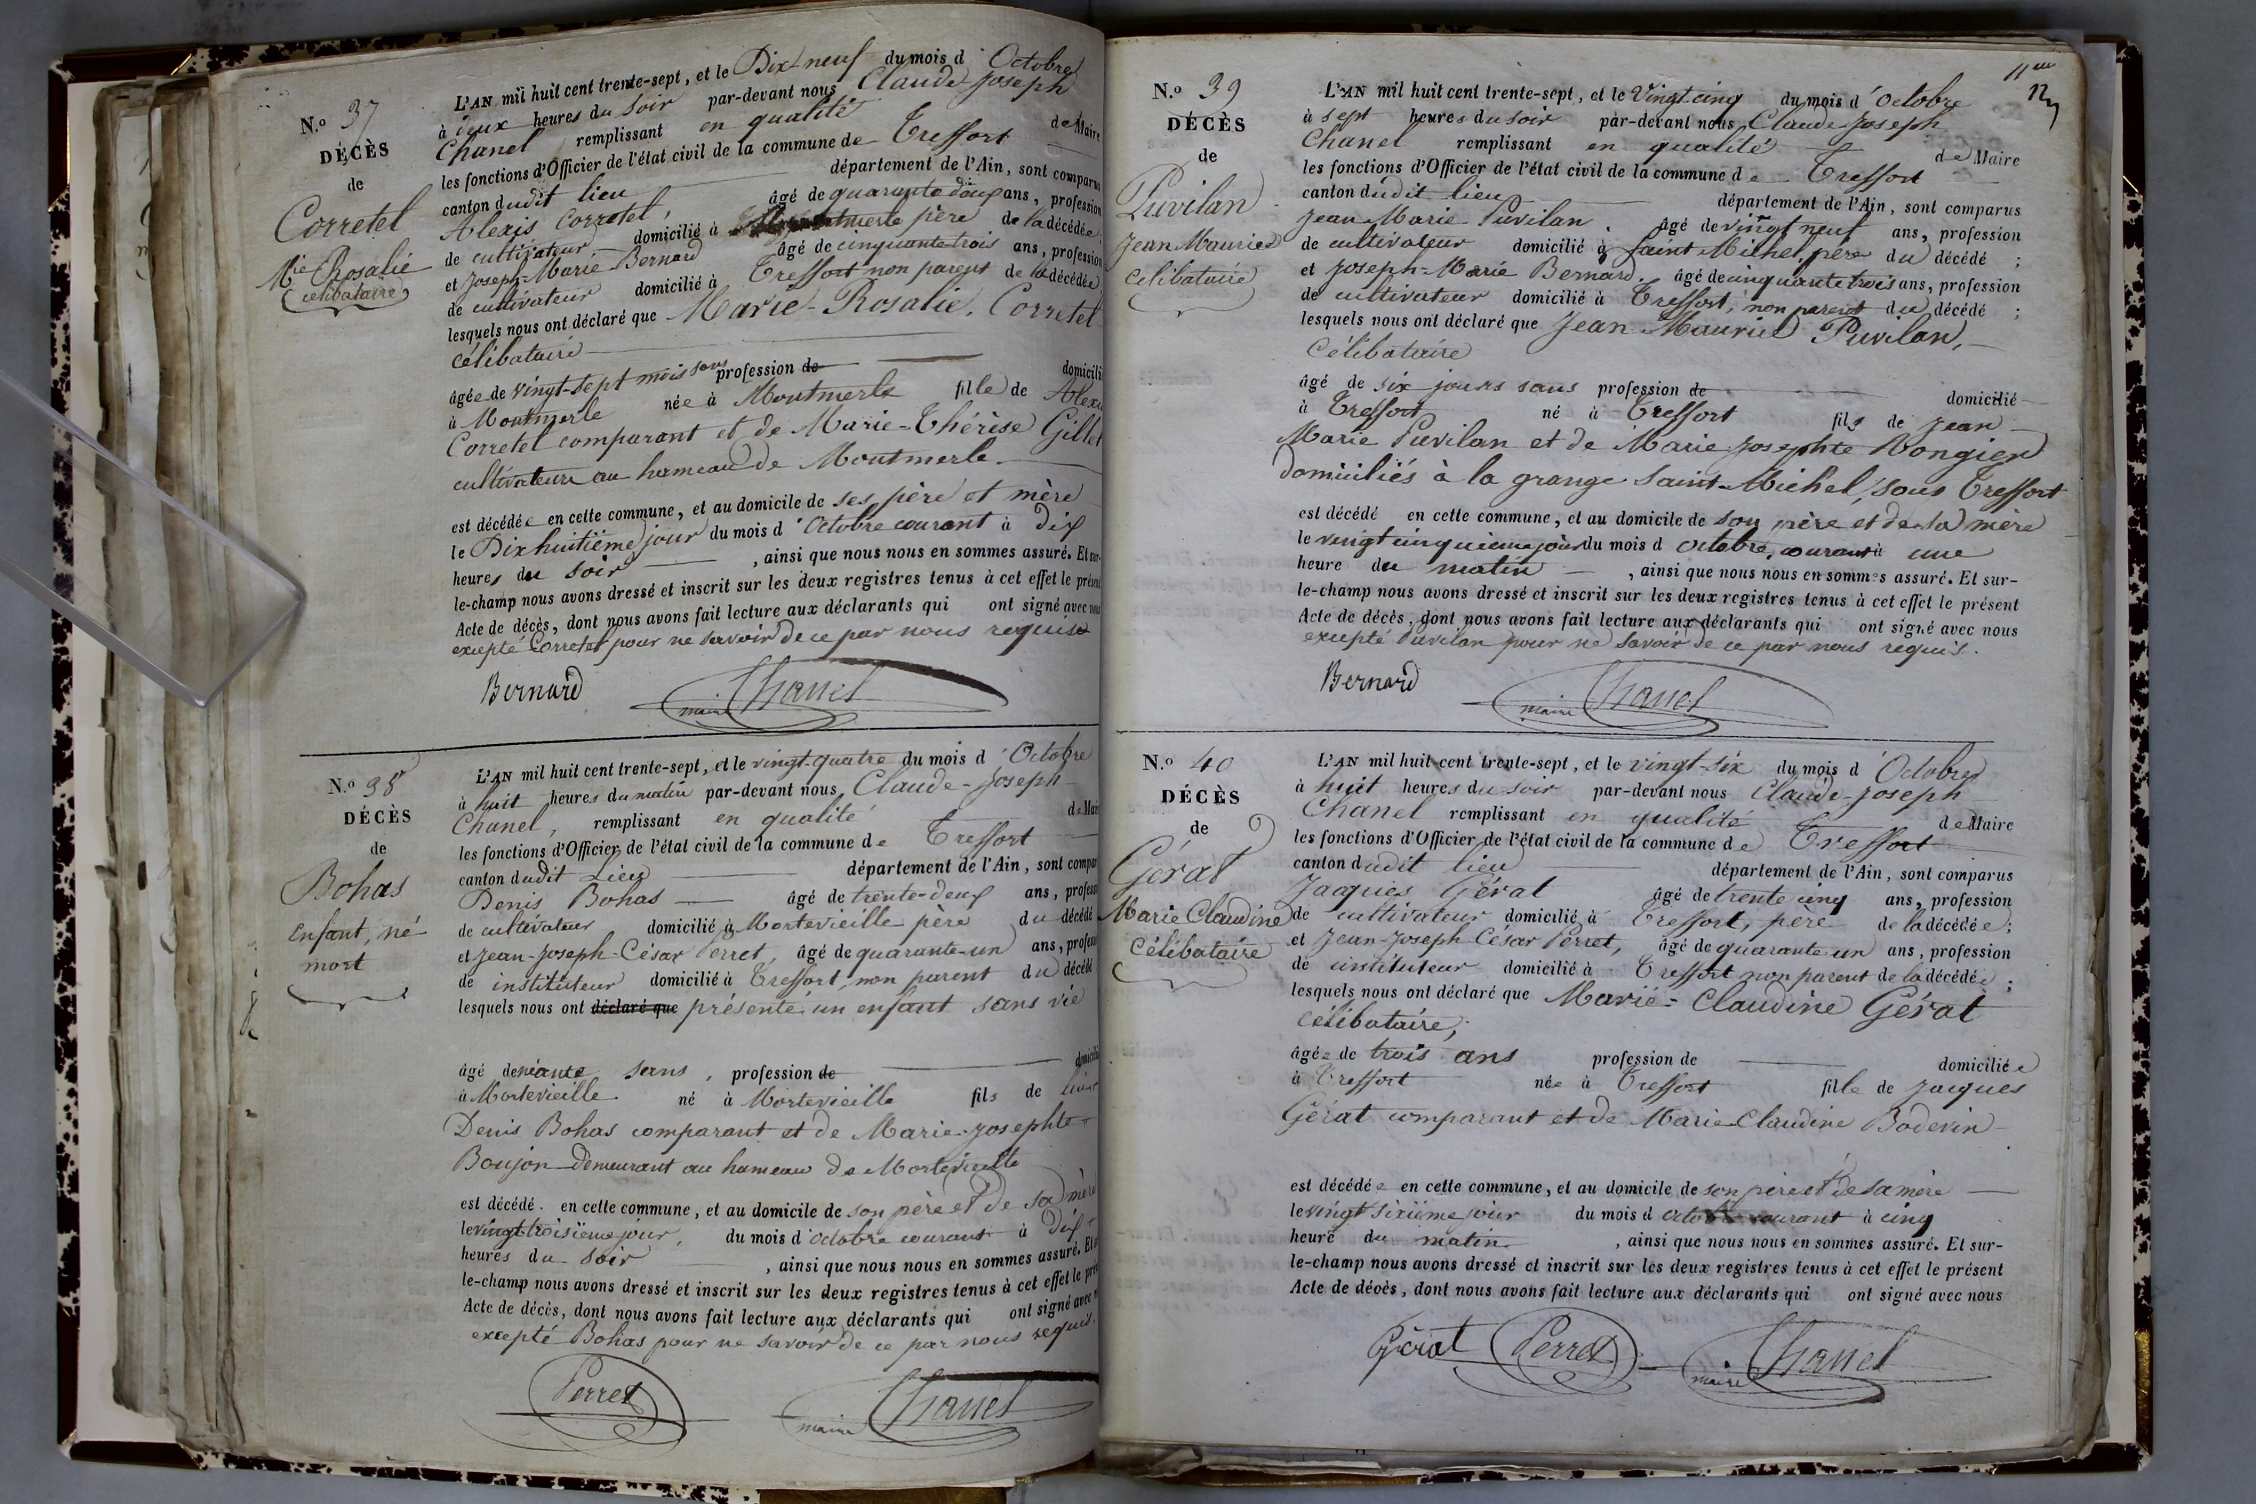 N.º 37
DÉCÈS
de
Corretel
Mie Rosalie
célibataire
L'AN mil huit cent trente-sept, et le Dix-neuf du mois d'Octobre
à deux heures du Soir par-devant nous Claude-Joseph
Chanel remplissant en qualité de Maire
les fonctions d'Officier de l'état civil de la commune de Treffort
canton dudit lieu département de l'Ain, sont comparus
Alexis Corretel, âgé de quarante deux ans, profession
de cultivateur domicilié à Montmerle père de la décédée
et Joseph-Marie Bernard âgé de cinquante-trois ans, profession
de cultivateur domicilié à Treffort non parent de la décédée
lesquels nous ont déclaré que Marie-Rosalie, Corretel
célibataire
âgée de vingt-sept mois sans profession de domicili
à Montmerle née à Montmerle fille de Alexi
Corretel comparant et de Marie-Thérèse Gillet
cultivateurs au hameau de Montmerle.
est décédée en cette commune, et au domicile de ses père et mère
le Dix huitième jour du mois d'Octobre courant à dix
heures du soir, ainsi que nous nous en sommes assuré. Et sur-
le-champ nous avons dressé et inscrit sur les deux registres tenus à cet effet le présent
Acte de décès, dont nous avons fait lecture aux déclarants qui ont signé avec nous
excepté Corretel pour ne savoir de ce par nous requis
Bernard
maire Chanel
N.º 38
DÉCÈS
de
Bohas
enfant, né
mort
L'AN mil huit cent trente-sept, et le vingt-quatre du mois d'Octobre
à huit heures du matin par-devant nous Claude-Joseph
Chanel, remplissant en qualité de Mair
les fonctions d'Officier de l'état civil de la commune de Treffort
canton dudit Lieu département de l'Ain, sont compar
Denis Bohas âgé de trente-deux ans, profess
de cultivateur domicilié à Mortevieille père du décédé
et Jean-Joseph-César Perret, âgé de quarante-un ans, profess
de instituteur domicilié à Treffort, non parent du décédé
lesquels nous ont déclaré que présenté un enfant sans vie
âgé de néante sans, profession de domicilié
à Mortevieille né à Mortevieille fils de
Denis Bohas comparant et de Marie-Josephte
Boujon demeurant au hameau de Mortevieille
est décédé en cette commune, et au domicile de son père et de sa mère
le vingt troisième jour, du mois d'octobre courant à dix
heures du soir, ainsi que nous nous en sommes assuré. Et
le-champ nous avons dressé et inscrit sur les deux registres tenus à cet effet le prés
Acte de décès, dont nous avons fait lecture aux déclarants qui ont signé avec n
excepté Bohas pour ne savoir de ce par nous requis.
Perret
maire Chanel
N.º 39
DÉCÈS
de
Puvilan
Jean Maurice
célibataire
L'AN mil huit cent trente-sept, et le Vingt cinq du mois d'Octobre
à sept heures du soir par-devant nous Claude-Joseph
Chanel remplissant en qualité de Maire
les fonctions d'Officier de l'état civil de la commune de Treffort
canton dudit lieu département de l'Ain, sont comparus
Jean-Marie Puvilan, âgé de vingt neuf ans, profession
de cultivateur domicilié à Saint Michel, père du décédé ;
et Joseph-Marie Bernard. âgé de cinquante trois ans, profession
de cultivateur domicilié à Treffort, non parent du décédé ;
lesquels nous ont déclaré que Jean Maurice Puvilan,
célibataire
âgé de six jours sans profession de domicilié
à Treffort né à Treffort fils de Jean
Marie Puvilan et de Marie Josephte Rongier
domiciliés à la grange Saint-Michel, sous Treffort
est décédé en cette commune, et au domicile de son père et de sa mère
le vingt cinquième jour du mois d octobre, courant à une
heure du matin, ainsi que nous nous en sommes assuré. Et sur-
le-champ nous avons dressé et inscrit sur les deux registres tenus à cet effet le présent
Acte de décès, dont nous avons fait lecture aux déclarants qui ont signé avec nous
excepté Puvilan pour ne savoir de ce par nous requis.
Bernard
maire Chanel
N.º 40
DÉCÈS
de
Gérat
Marie Claudine
Célibataire
L'AN mil huit cent trente-sept, et le vingt-six du mois d'Octobre
à huit heures du soir par-devant nous Claude-Joseph
Chanel remplissant en qualité de Maire
les fonctions d'Officier de l'état civil de la commune de Treffort
canton dudit lieu département de l'Ain, sont comparus
Jaques Gérat âgé de trente cinq ans, profession
de cultivateur domicilié à Treffort, père de la décédée ;
et Jean-Joseph César Perret, âgé de quarante-un ans, profession
de instituteur domicilié à Treffort non parent de la décédée ;
lesquels nous ont déclaré que Marie-Claudine Gérat
célibataire,
âgée de trois ans profession de domiciliée
à Treffort née à Treffort fille de Jacques
Gérat comparant et de Marie-Claudine Bodevin
est décédée en cette commune, et au domicile de son père et de sa mère
le vingt sixième jour du mois d octobre courant à cinq
heure du matin, ainsi que nous nous en sommes assuré. Et sur-
le-champ nous avons dressé et inscrit sur les deux registres tenus à cet effet le présent
Acte de décès, dont nous avons fait lecture aux déclarants qui ont signé avec nous
Gérat Perret maire Chanel